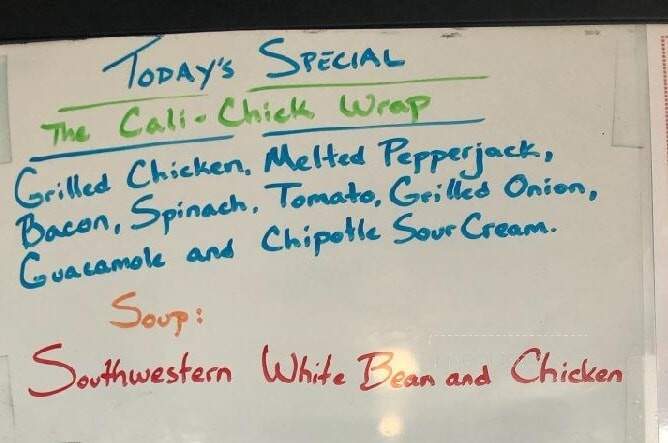 Today's Special
The Cali-Chick Wrap
Grilled Chicken, Melted Pepperjack,
Bacon, Spinach, Tomato, Grilled Onion,
Guacamole and Chipotle Sour Cream.
Soup:
Southwestern White Bean and Chicken